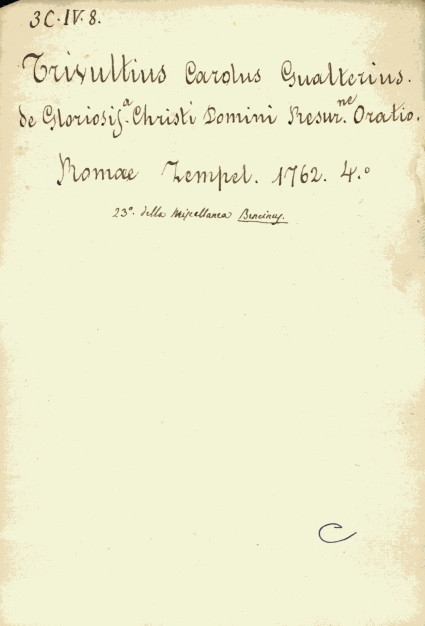 3C·IV·8.
Trivultius Carolus Gualterius.
de Gloriosisˢ.ᵃ Christi Domini Resur.ⁿᵉ Oratio.
Romae Zempel. 1762. 4.°
23ª. della Miscellanea
C